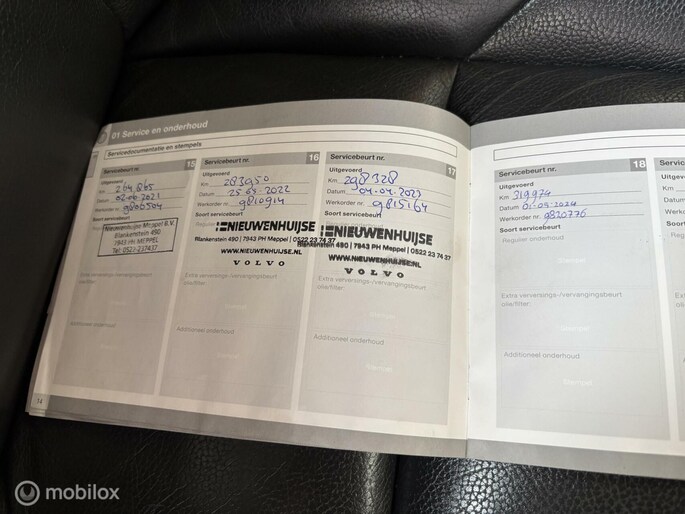 01 Service en onderhoud
Servicedocumentatie en stempels
Servicebeurt nr. 15
Uitgevoerd
Km 264865
Datum 02-06-2021
Werkorder nr. 9800504
Soort servicebeurt
Nieuwenhuijse Meppel B.V.
Blankenstein 490
7943 PH MEPPEL
Tel: 0522-237437
Extra verversings-/vervangingsbeurt
olie/filter:
Additioneel onderhoud
Servicebeurt nr. 16
Uitgevoerd
Km 283950
Datum 25-05-2022
Werkorder nr. 9810914
Soort servicebeurt
NIEUWENHUIJSE
Blankenstein 490 | 7943 PH Meppel | 0522 23 74 37
WWW.NIEUWENHUIJSE.NL
VOLVO
Extra verversings-/vervangingsbeurt
olie/filter:
Additioneel onderhoud
Stempel
Servicebeurt nr. 17
Uitgevoerd
Km 298328
Datum 04-04-2023
Werkorder nr. 9815164
Soort servicebeurt
NIEUWENHUIJSE
Blankenstein 490 | 7943 PH Meppel | 0522 23 74 37
WWW.NIEUWENHUIJSE.NL
VOLVO
Extra verversings-/vervangingsbeurt
olie/filter:
Additioneel onderhoud
Stempel
Servicebeurt nr. 18
Uitgevoerd
Km 319974
Datum 01-05-2024
Werkorder nr. 9820776
Soort servicebeurt
Regulier onderhoud
Stempel
Extra verversings-/vervangingsbeurt
olie/filter:
Stempel
Additioneel onderhoud
Stempel
14
mobilox